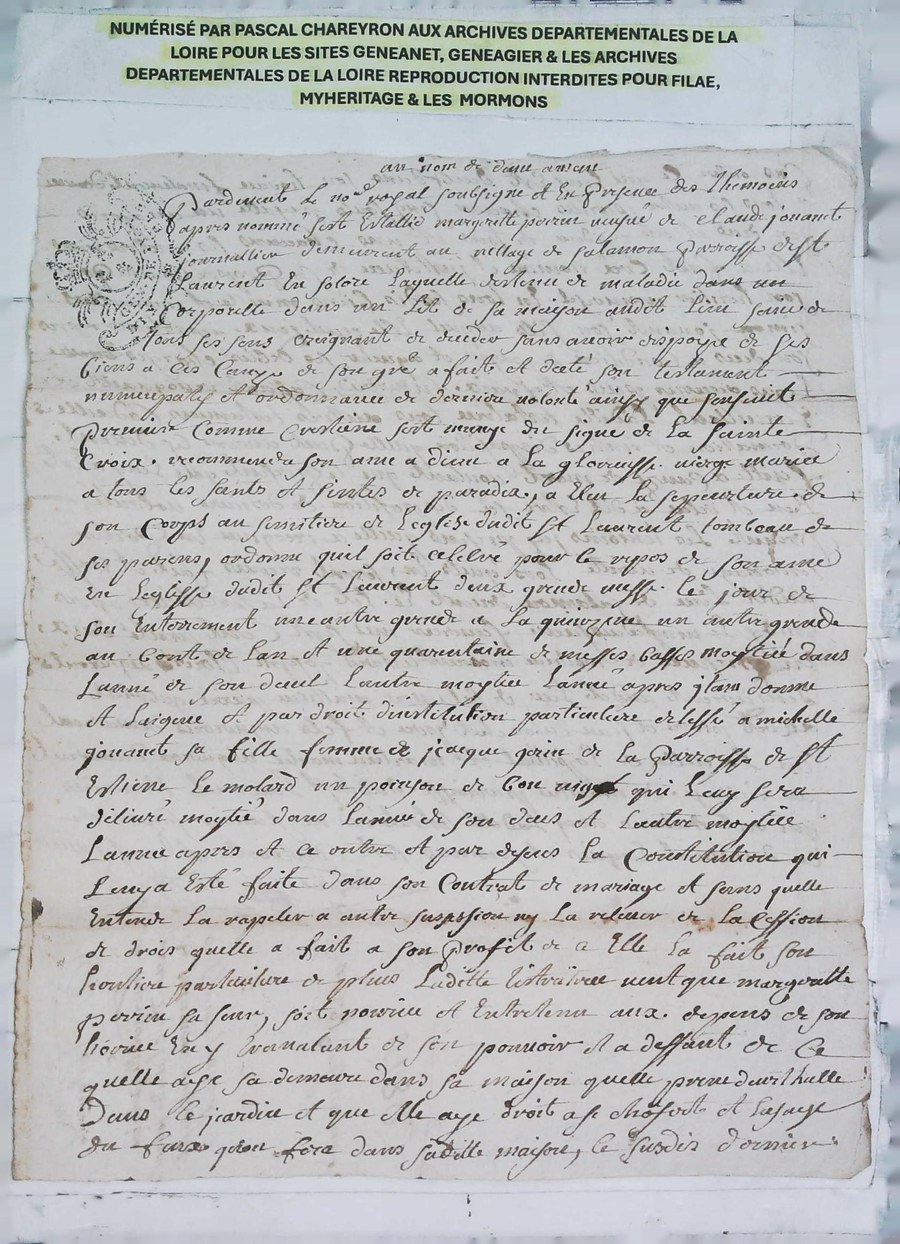 NUMÉRISÉ PAR PASCAL CHAREYRON AUX ARCHIVES DEPARTEMENTALES DE LA
LOIRE POUR LES SITES GENEANET, GENEAGIER & LES ARCHIVES
DEPARTEMENTALES DE LA LOIRE REPRODUCTION INTERDITES POUR FILAE,
MYHERITAGE & LES MORMONS
au nom de dieu amen
Pardevant le no.re royal soubsigné et En presence des
apres nommé fert Establie margritte perrin de Claude jouanet
journallier demeurent au village de salamon parroisse de st
Laurent En solore Laquelle destenue de maladie dans un
Corporelle dans un Lit de sa maison audit Lieu saine de
Tous ses sens creignant de deceder sans avoir dispozé de ses
biens a ces de son gré a fait et son testament
et ordonnance de derniere volonté ainsy que sensuit
premier Comme Crestiene fert du signe de La sainte
Croix. recommende son ame a dieu a La glorieusse vierge marie
a tous les sants et sintes de paradis, a Eleu La sepeurture de
son Corps au semitiere de Leglise dudit st Laurent tombeau de
ses parens, ordonne quil soit celebré pour le repos de son ame
En Leglisse dudit st Laurent deux grande messe le jour de
son Enterrement une autre grende a La quinzene un autre grende
au bout de Lan et une quarentaine de messes basses moytiée dans
Lanné de son Lautre moytiée Lanné apres donne
et et par droit dinstitution particuliere delessé a michelle
jouanet sa fille femme de jcaque grin de La parroisse de st
Estiene Le molard un poinson de bon qui Leuy sera
deliuré moytié dans Lanné de son deces et Lautre moytiée
Lannee apres et ce outre et par desus La Constitution qui
Leuy a Esté faite dans son Contrat de mariage et sans quelle
Entende La rapeler a autre suspsion ny La relever de La Cession
de drois quelle a fait a son profit de a Elle La fait son
heritiere particuliere de plus Laditte testatrice veut que margueritte
perrin sa seur, soit nourrie et Entretenue aux depens de son
En y travalant de son pouvoir et a deffaut de Ce
quelle aye sa demeure dans sa maison quelle prene
Dans le jardin et que elle aye droit a se chofert et
du qu'on fera dans saditte maison, le susdis dernier